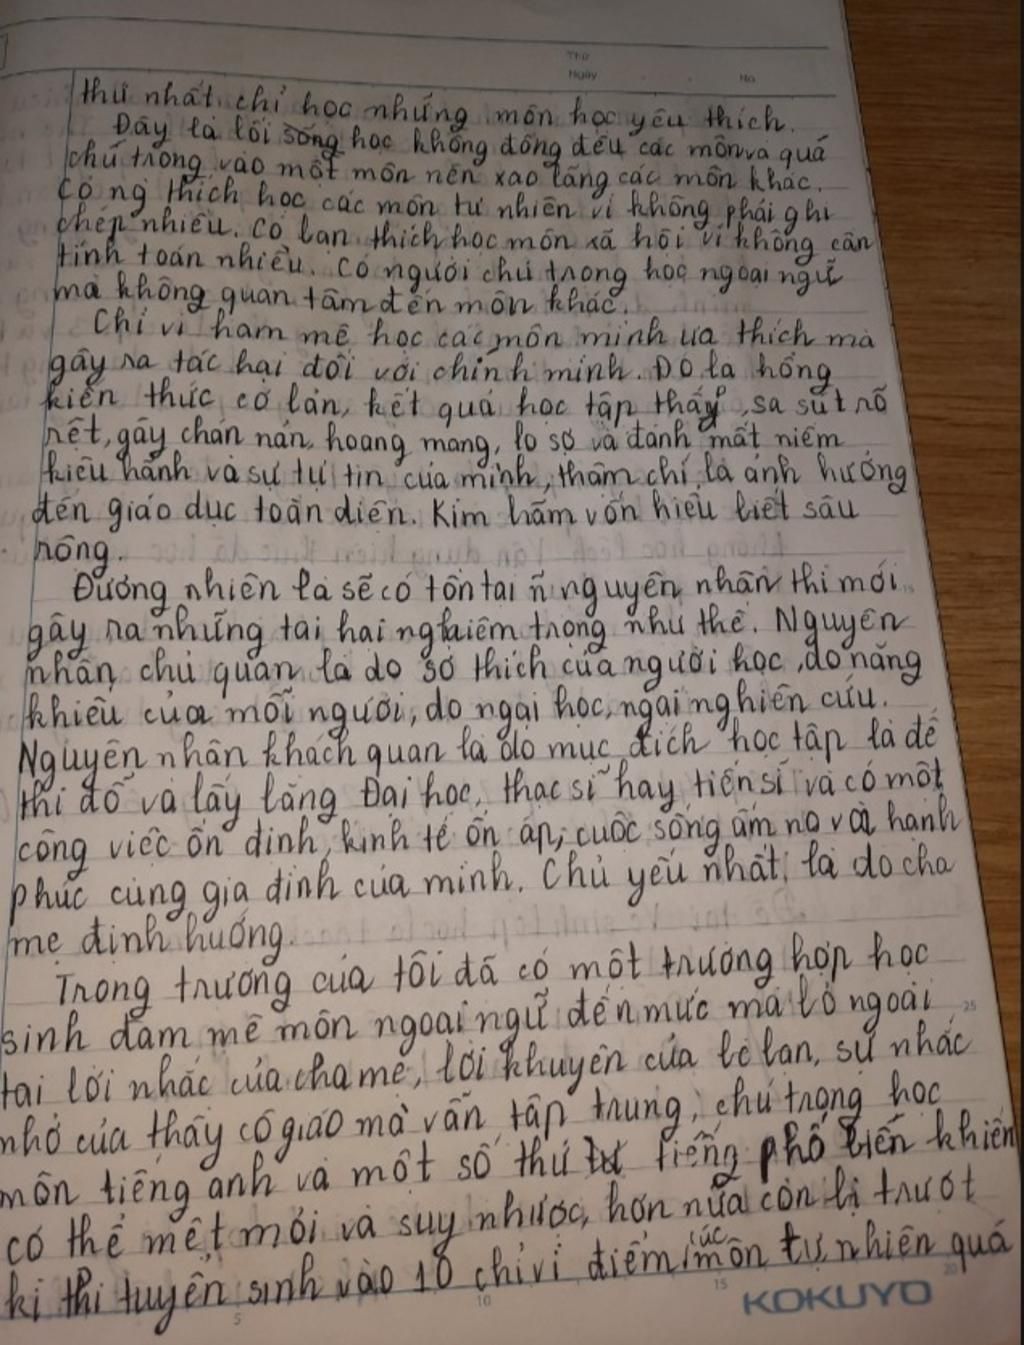 Thứ
Ngày
No
thứ nhất, chỉ học những môn học yêu thích.
Đây là lối sống học không đồng đều các môn và quá
chú trọng vào một môn nên xao lãng các môn khác.
Có ng thích học các môn tự nhiên vì không phải ghi
chép nhiều. Có bạn thích học môn xã hội vì không cần
tính toán nhiều. Có người chú trọng học ngoại ngữ
mà không quan tâm đến môn khác.
Chỉ vì ham mê học các môn mình ưa thích mà
gây ra tác hại đối với chính mình. Đó là hổng
kiến thức cơ bản, kết quả học tập thấy sa sút rõ
rệt, gây chán nản, hoang mang, lo sợ và đánh mất niềm
kiêu hãnh và sự tự tin của mình, thậm chí là ảnh hưởng
đến giáo dục toàn diện. Kìm hãm vốn hiểu biết sâu
rộng.
Đương nhiên là sẽ có tồn tại ñ nguyên nhân thì mới
gây ra những tai hại nghiêm trọng như thế. Nguyên
nhân chủ quan là do sở thích của người học, do năng
khiếu của mỗi người, do ngại học, ngại nghiên cứu.
Nguyên nhân khách quan là do mục đích học tập là để
thi đỗ và lấy bằng Đại học, thạc sĩ hay tiến sĩ và có một
công việc ổn định, kinh tế ổn áp, cuộc sống ấm no và hạnh
phúc cùng gia đình của mình. Chủ yếu nhất là do cha
mẹ định hướng.
Trong trường của tôi đã có một trường hợp học
sinh đam mê môn ngoại ngữ đến mức mà bỏ ngoài
tai lời nhắc của cha mẹ, lời khuyên của bè bạn, sự nhắc
nhở của thầy cô giáo mà vẫn tập trung, chú trọng học
môn tiếng anh và một số thứ tiếng phổ biến khiến
cơ thể mệt mỏi và suy nhược, hơn nữa còn bị trượt
kì thi tuyển sinh vào 10 chỉ vì điểm các môn tự nhiên quá
5 10 15 20 25
KOKUYO